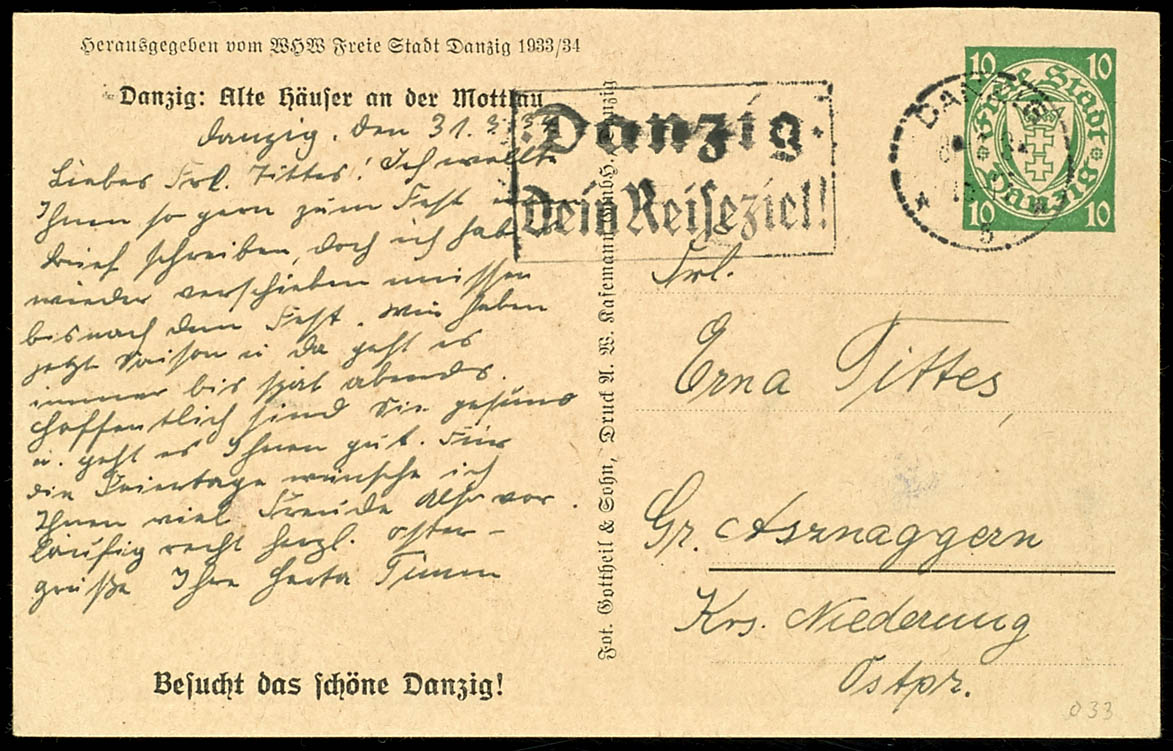 Herausgegeben vom WHW Freie Stadt Danzig 1933/34
Danzig: Alte Häuser an der Mottlau
Danzig, den 31.3.34
Liebes Frl. Tittes! Ich wollte
Ihnen so gern zum Fest
Brief schreiben, doch ich hab
wieder verschieben müssen
bis nach dem Fest. Wir haben
jetzt Saison u da geht es
immer bis spät abends.
Hoffentlich sind Sie gesund
u. geht es Ihnen gut. Für
die Feiertage wünsche ich
Ihnen viel Freude Also vor
läufig recht herzl. Oster-
grüße Ihre Herta Timm
Besucht das schöne Danzig!
Fot. Gottheil & Sohn, Druck A. W. Kafemann GmbH, Danzig
Danzig.
Dein Reiseziel!
DANZIG
5
10 10
Freie Stadt
Danzig
10 10
Frl.
Erna Tittes,
Gr. Asznaggern
Krs. Niederung
Ostpr.
033